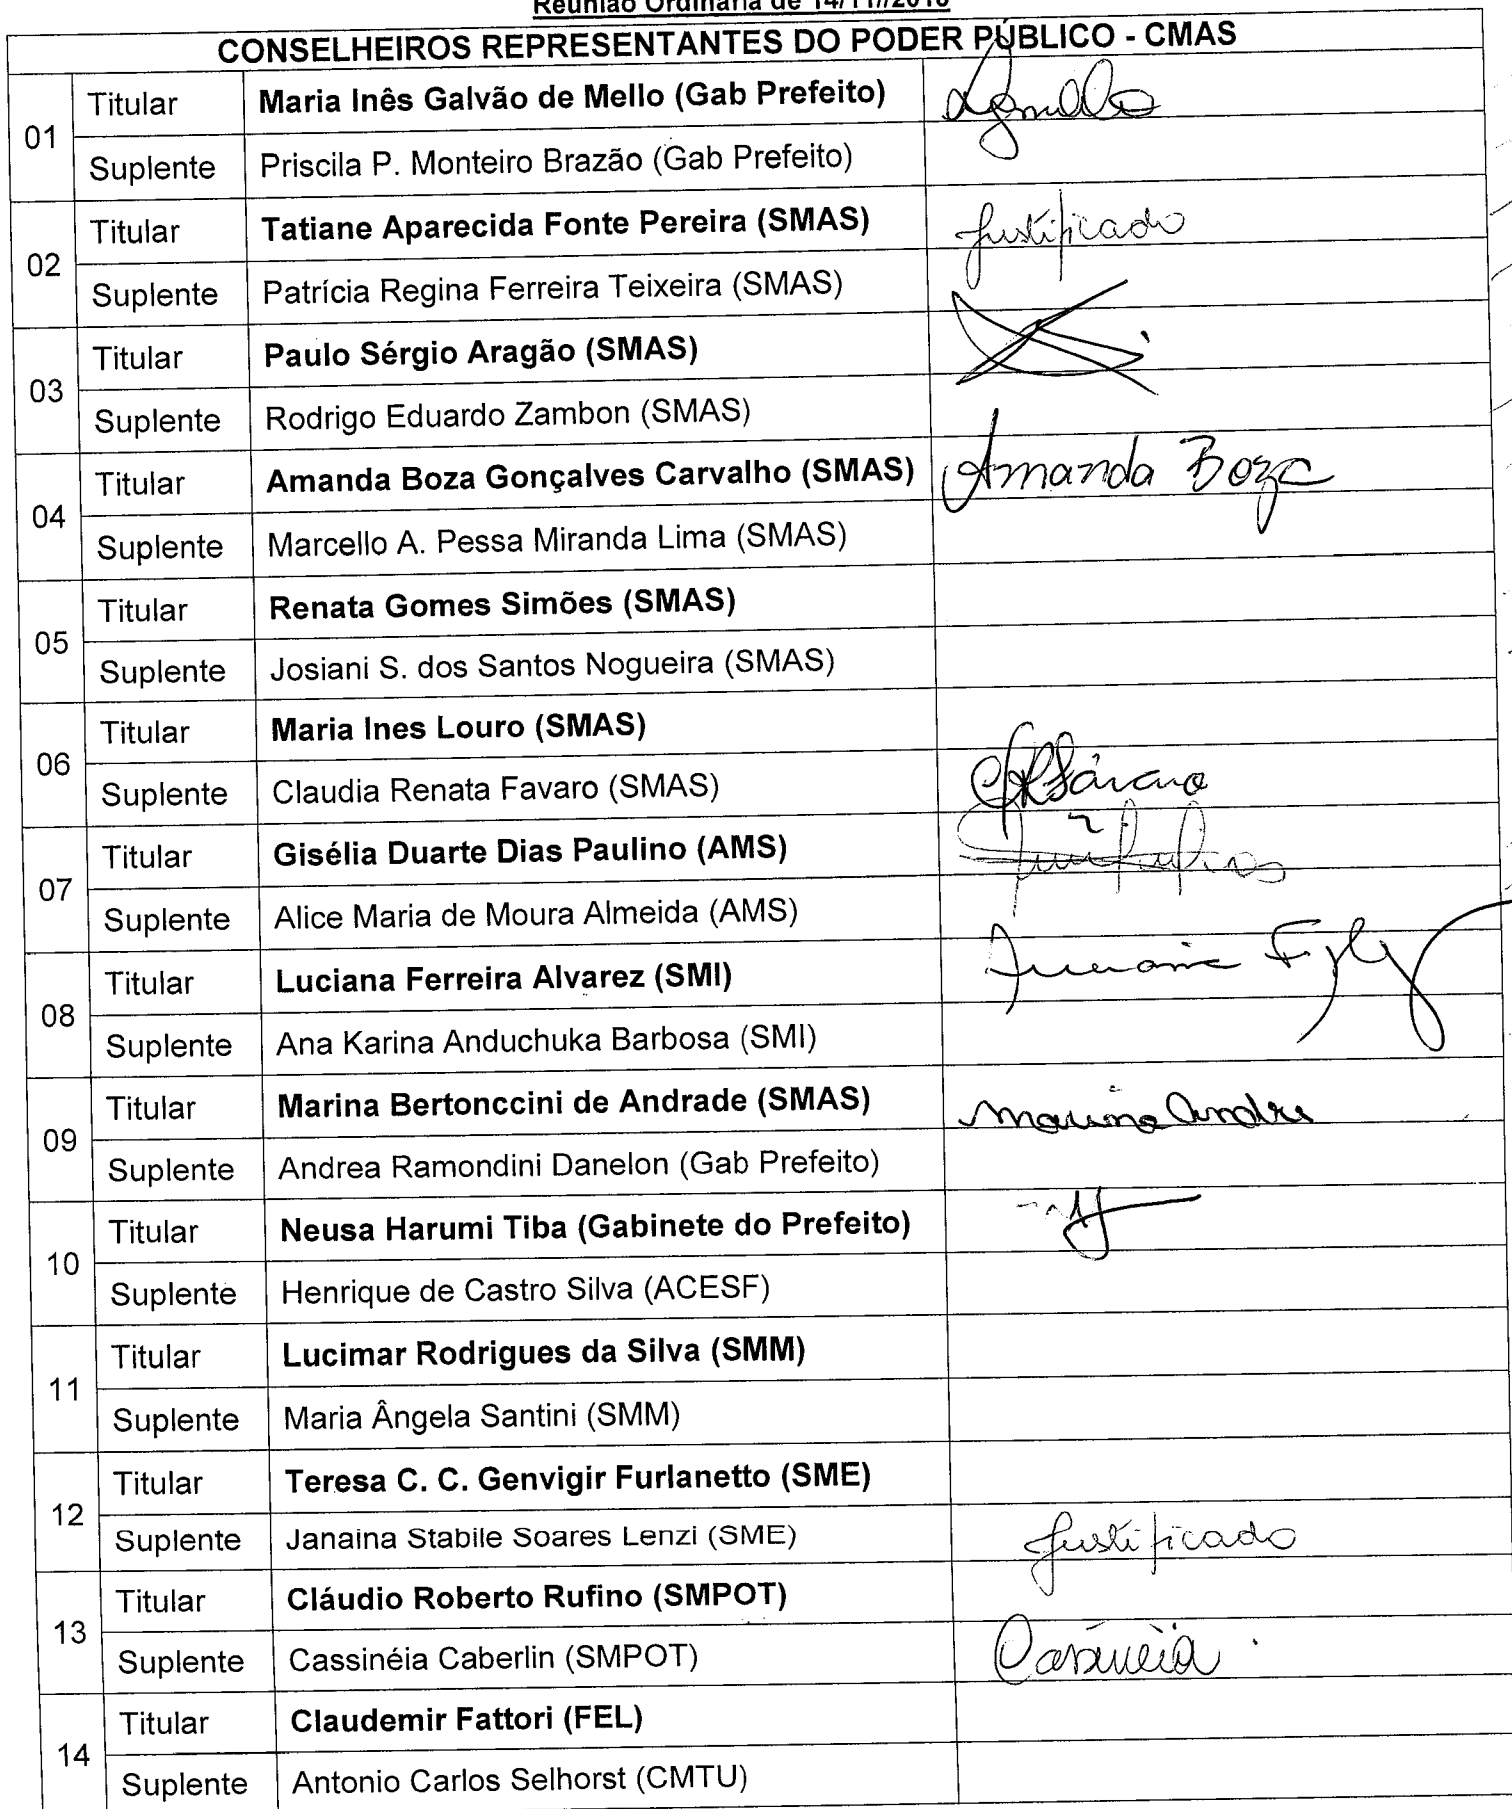 Reunião Ordinária de 14/11//2018
CONSELHEIROS REPRESENTANTES DO PODER PÚBLICO - CMAS
01 Titular Maria Inês Galvão de Mello (Gab Prefeito)
Suplente Priscila P. Monteiro Brazão (Gab Prefeito)
02 Titular Tatiane Aparecida Fonte Pereira (SMAS) Justificado
Suplente Patrícia Regina Ferreira Teixeira (SMAS)
03 Titular Paulo Sérgio Aragão (SMAS)
Suplente Rodrigo Eduardo Zambon (SMAS)
04 Titular Amanda Boza Gonçalves Carvalho (SMAS) Amanda Boza
Suplente Marcello A. Pessa Miranda Lima (SMAS)
05 Titular Renata Gomes Simões (SMAS)
Suplente Josiani S. dos Santos Nogueira (SMAS)
06 Titular Maria Ines Louro (SMAS)
Suplente Claudia Renata Favaro (SMAS) CRFávaro
07 Titular Gisélia Duarte Dias Paulino (AMS)
Suplente Alice Maria de Moura Almeida (AMS)
08 Titular Luciana Ferreira Alvarez (SMI)
Suplente Ana Karina Anduchuka Barbosa (SMI)
09 Titular Marina Bertonccini de Andrade (SMAS) Marina Andre
Suplente Andrea Ramondini Danelon (Gab Prefeito)
10 Titular Neusa Harumi Tiba (Gabinete do Prefeito)
Suplente Henrique de Castro Silva (ACESF)
11 Titular Lucimar Rodrigues da Silva (SMM)
Suplente Maria Ângela Santini (SMM)
12 Titular Teresa C. C. Genvigir Furlanetto (SME)
Suplente Janaina Stabile Soares Lenzi (SME) Justificado
13 Titular Cláudio Roberto Rufino (SMPOT)
Suplente Cassinéia Caberlin (SMPOT) Cassinéia
14 Titular Claudemir Fattori (FEL)
Suplente Antonio Carlos Selhorst (CMTU)